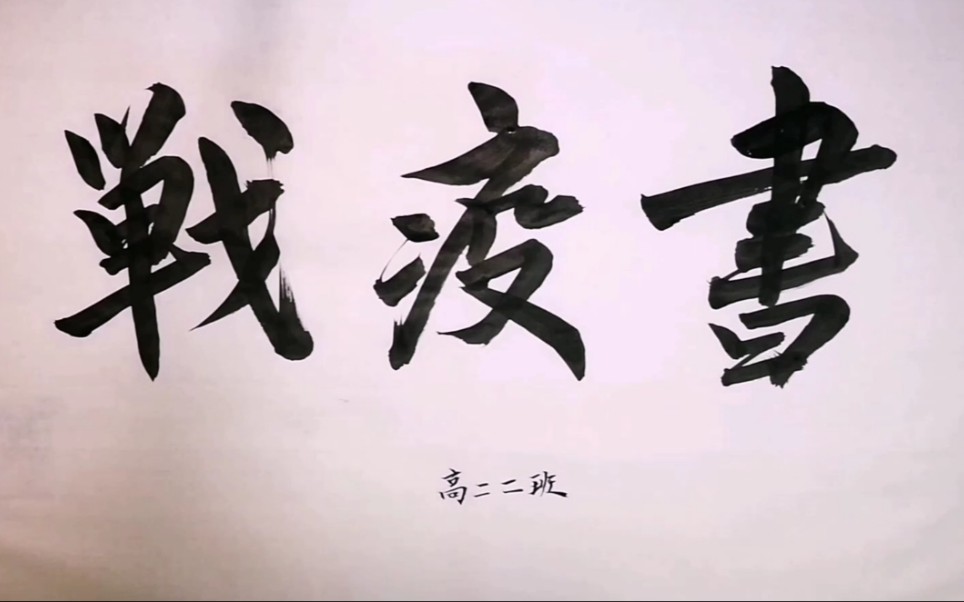 戦疫書
高二二班